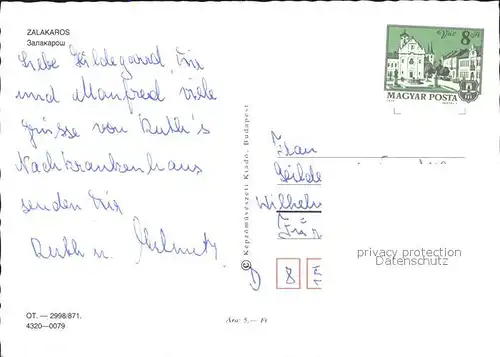 ZALAKAROS
Залакарош
Liebe Hildegard, Dir
und Manfred, viele
Grüsse von Ruth's
Nachkrankenhaus
senden Dir
Ruth u. Helmut.
Vác 8 Ft
MAGYAR POSTA
© Képzőművészeti Kiadó, Budapest
Frau
Wilhelm
D 8
privacy protection
Datenschutz
OT. — 2998/871.
4320—0079
Ára: 5,— Ft